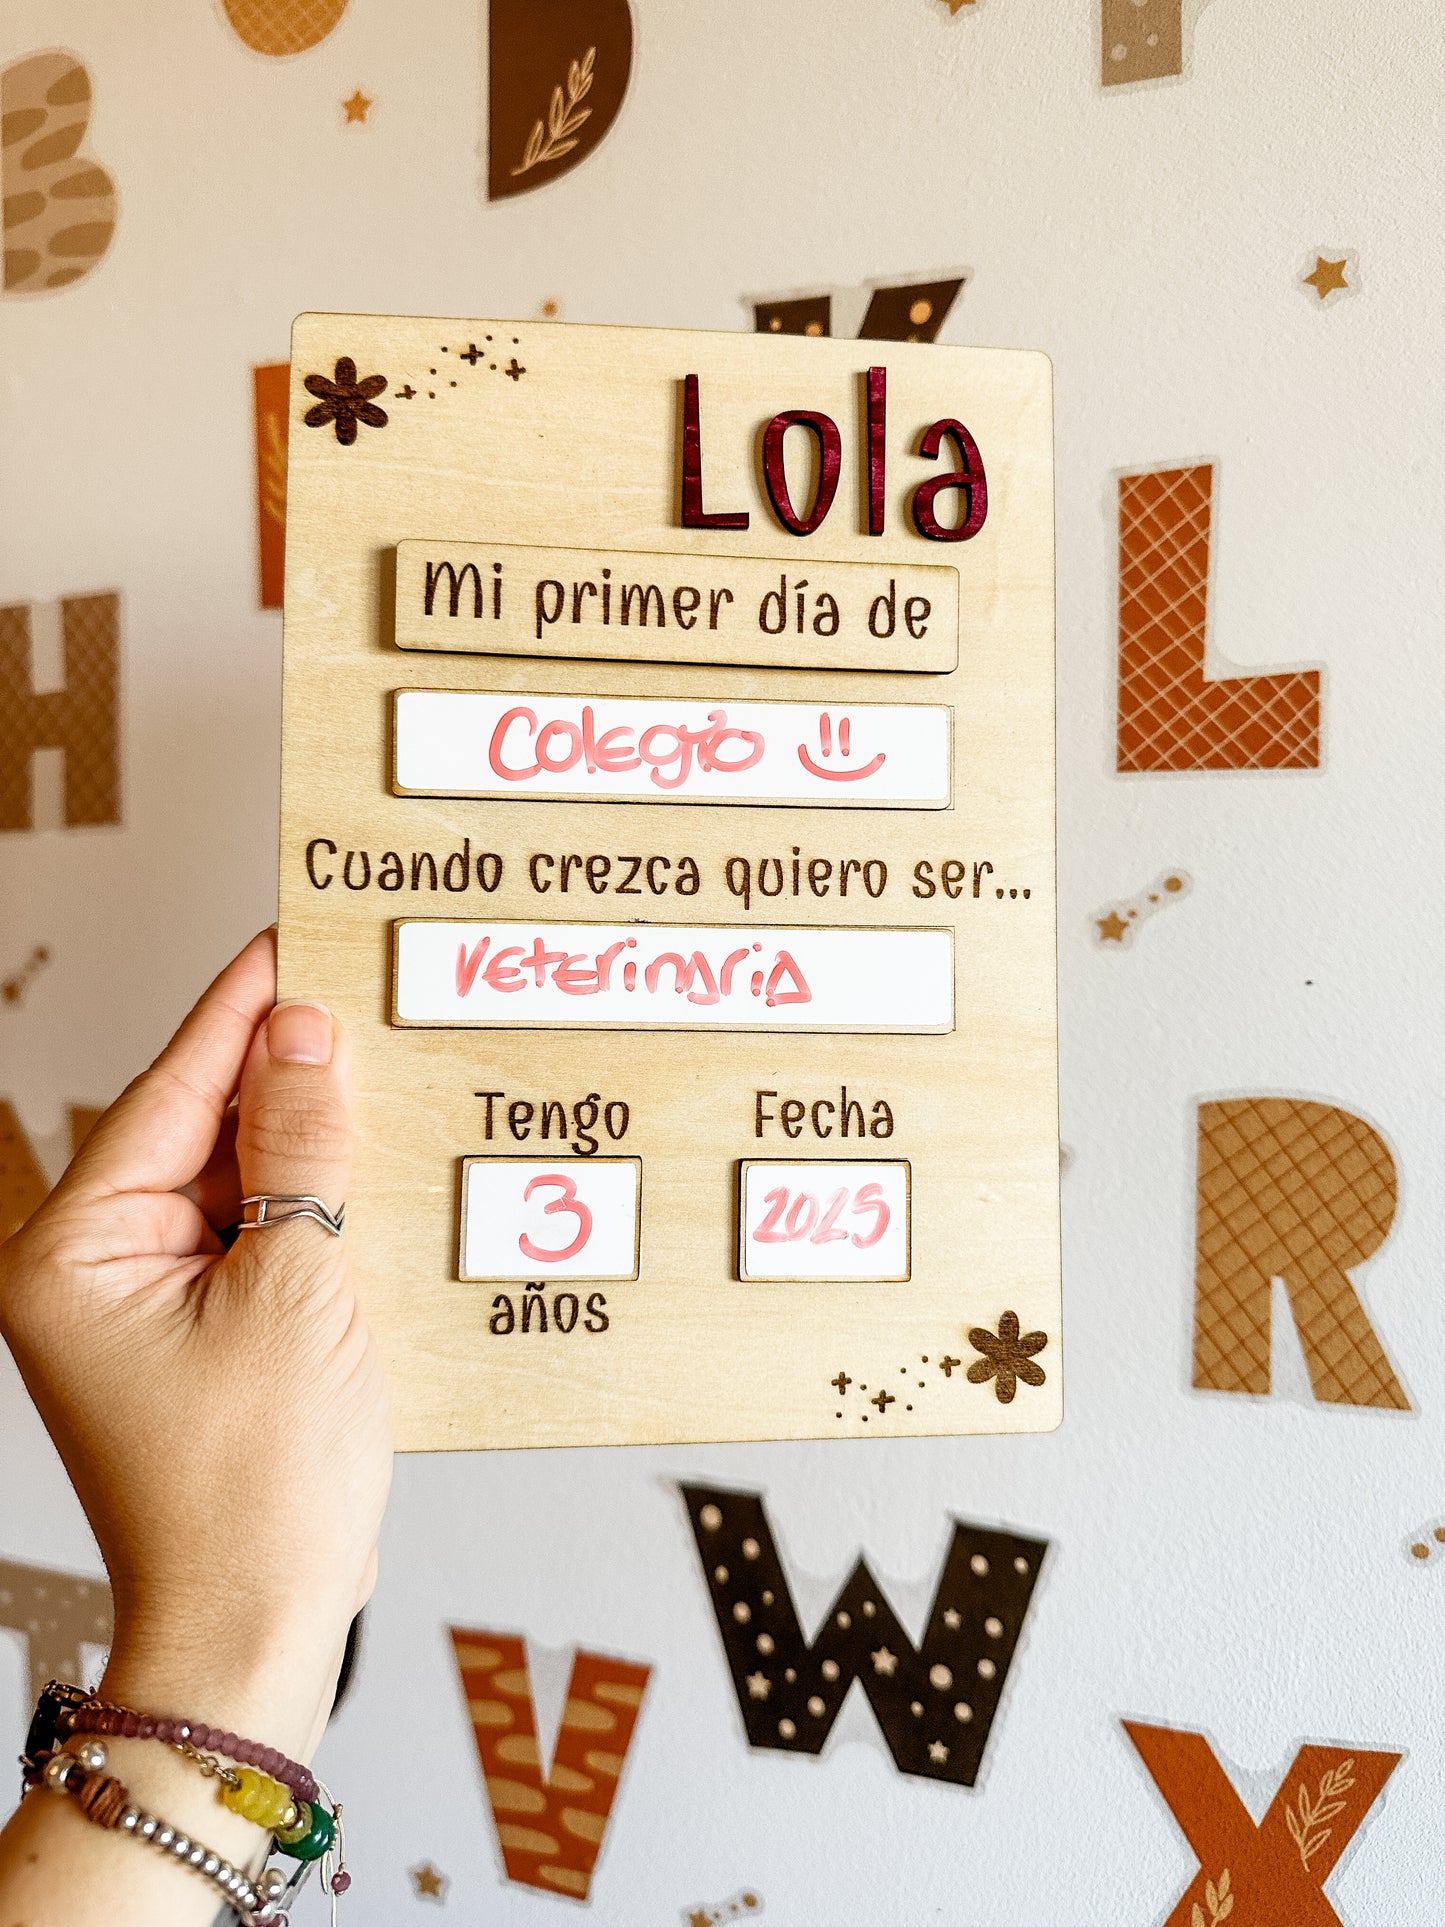 Lola
Mi primer día de
Colegio
Cuando crezca quiero ser...
Veterinaria
Tengo
Fecha
3
2025
años
B
D
H
L
R
W
V
X